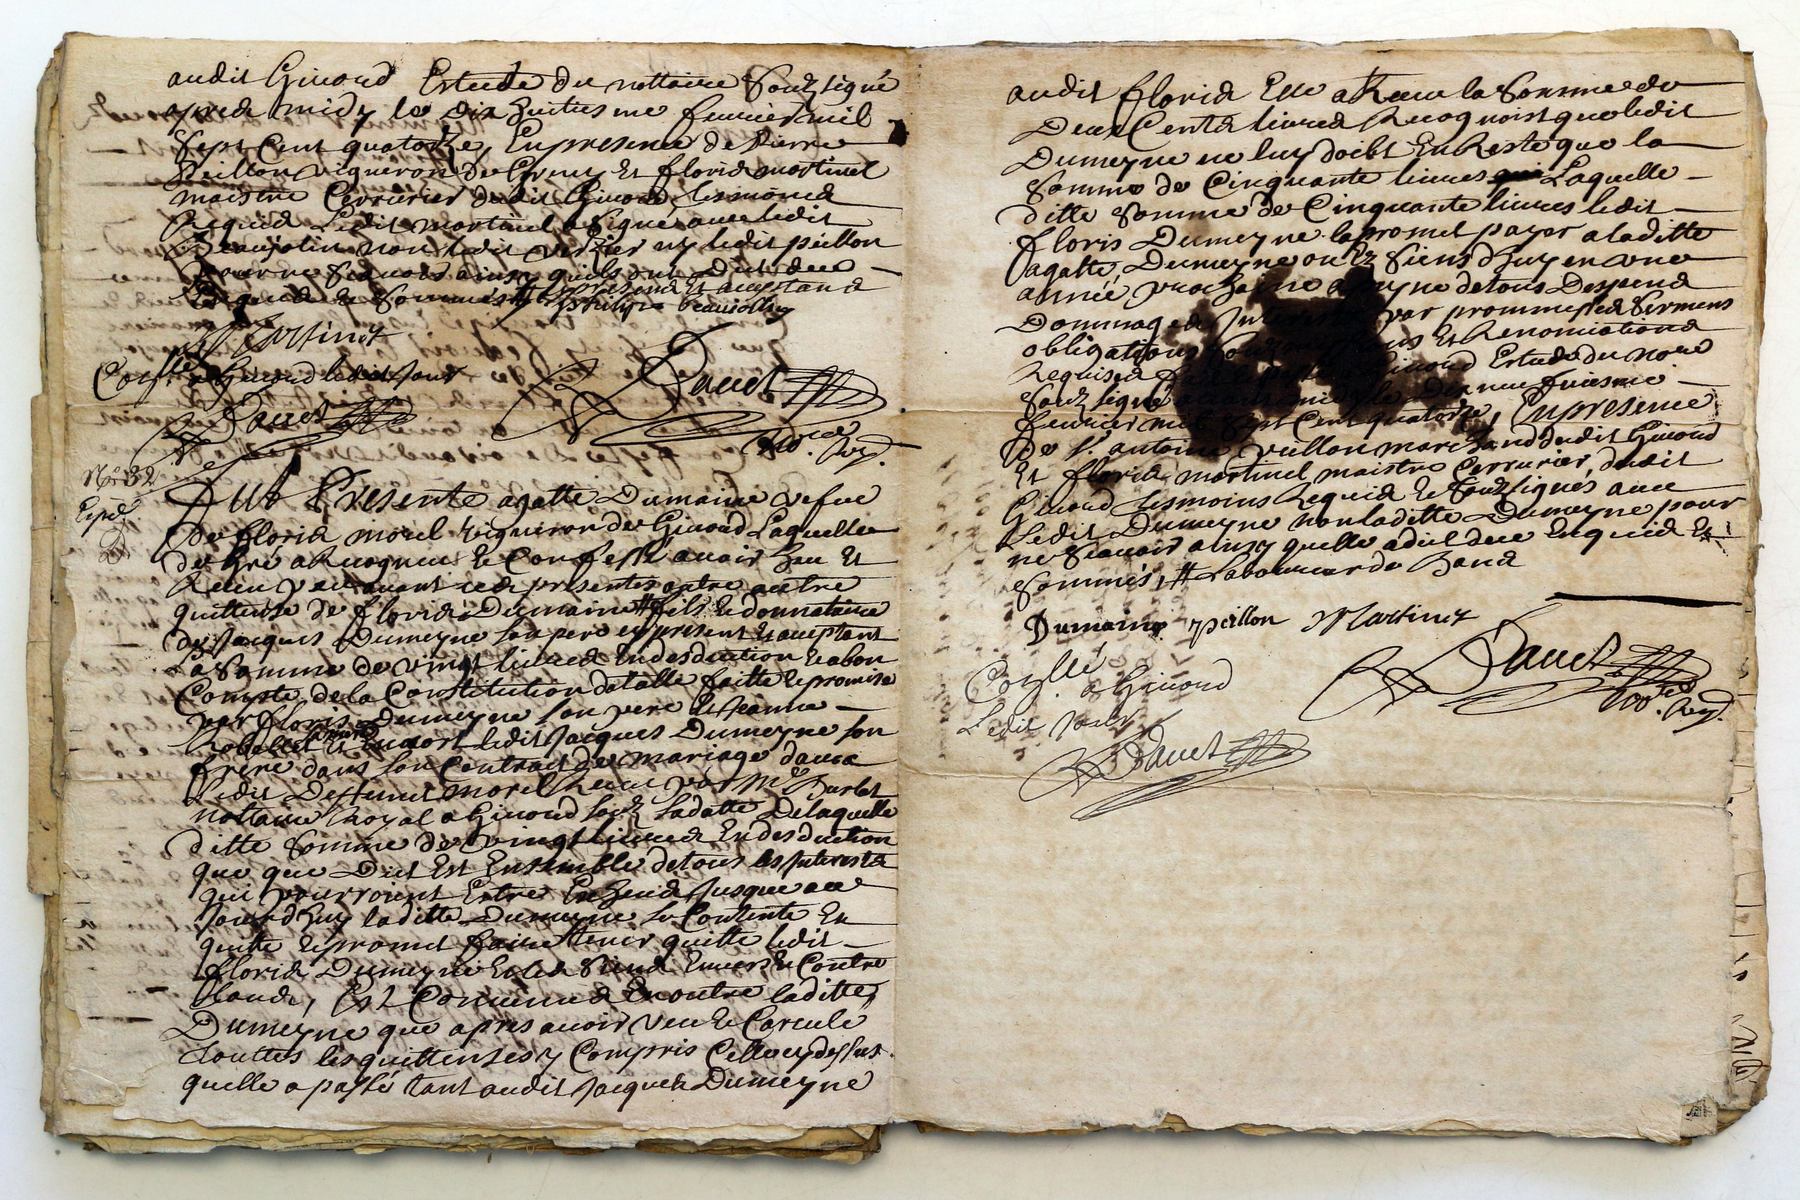 audit Givord Estude du nottaire Soubz signé
apres midy le dix huitiesme feuvrier mil
Sept Cent quatorze, En presence de Pierre
Peillon vigneron de Et floris martinet
maistre Cerrurier dudit Givord, tesmoins
Requis Ledit martinet a Signé avec ledit
Beaujolin non ledit ny ledit peillon
pour ne Scavoir ainsy quils ont dit de ce
Enquis et Sommés # present et acceptant
Martinet philipe beaujollin
a Givord ledit Jour
Dauet Dauet
No.re Roy.
No 32
Exped
Fut Presente agatte Dumaine vefve
de floris morel vigneron de Givord Laquelle
de gré a Recogneu et Confessé avoir heu Et
Receu par avant ces presentes outre autre
quittense de floris Dumaine # fils et donnataire
de Jacques Dumeyne son pere cy present Et acceptant
La Somme de vingt livres En desduction et abon
Compte de la Constitution dotalle faitte et promise
par floris Dumeyne son pere et Jeanne
Robellet Et Encor ledit Jacques Dumeyne son
frere dans son Contrat de mariage davec
Ledit deffunct morel Receu par Me Burlat
nottaire Royal a Givord Soubz Sa datte De laquelle
ditte Somme de vingt livres En desduction
que que Dit Est Ensemble de tous les Interests
qui pourroient Estre Escheus Jusques a ce
Jourd'huy laditte Dumeyne Se Contente En
quitte et promet faire tenir quitte ledit
floris Dumeyne Et les Siens Envers et Contre
tous, Est Convenue En outre laditte
Dumeyne que apres avoir veu et Carculé
touttes les quittenses y Compris Celle cy dessus
quelle a passé tant audit Jacques Dumeyne
audit floris Elle a Receu la Somme de
Deux Cents livres Recognoist que ledit
Dumeyne ne luy doibt En Reste que la
Somme de Cinquante livres Laquelle
ditte Somme de Cinquante livres ledit
floris Dumeyne la promet payer a laditte
agatte Dumeyne ou Es Siens d'huy en une
année prochaine a peyne de tous Despens
Dommages Interests par prommesses Sermens
obligations Et Renonciations
Requises Givord Estude du No.re
Soubz signé avant midy le dix neufviesme
feuvrier mil Sept Cent quatorze, En presence
De Sr. antoine peillon marchand dudit Givord
Et floris martinet maistre Cerrurier, dudit
Givord tesmoins Requis et Soubz signés avec
Ledit Dumeyne non laditte Dumeyne pour
ne Scavoir ainsy quelle a dit de ce Enquise Et
Sommés, # laboureur de
Dumaine peillon Martinet
a Givord
Ledit Jour
Dauet Dauet
No.re Roy.